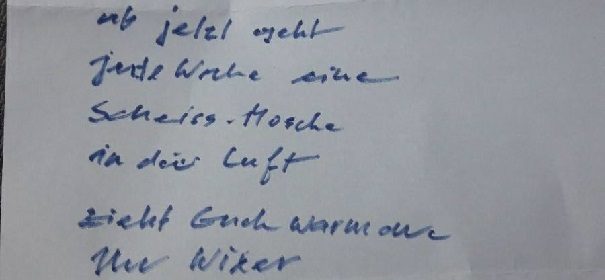 ab jetzt geht
jede Woche eine
Scheiss-Mosche
in die Luft
zieht Euch warm an
Ihr Wixer